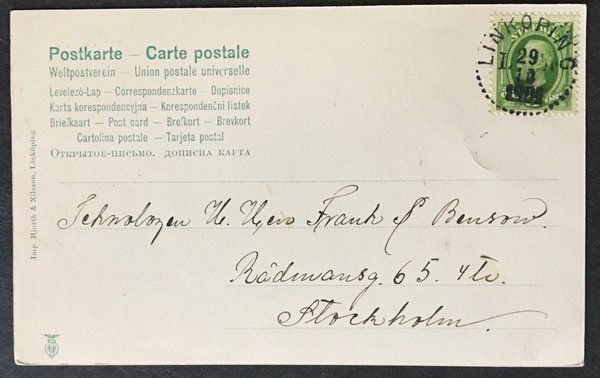 Postkarte — Carte postale
Weltpostverein — Union postale universelle
Levelező-Lap — Correspondenzkarte — Dopisnice
Karta korespondencyjna — Korespondenční listek
Briefkaart — Post card — Brefkort — Brevkort
Cartolina postale — Tarjeta postal
Открытое-письмо, дописна карта
Imp. Hjorth & Nilsson, Linköping.
LINKÖPING
29
Teknologen H. Frank Benson.
Rådmansg. 65. 4 tr.
Stockholm.